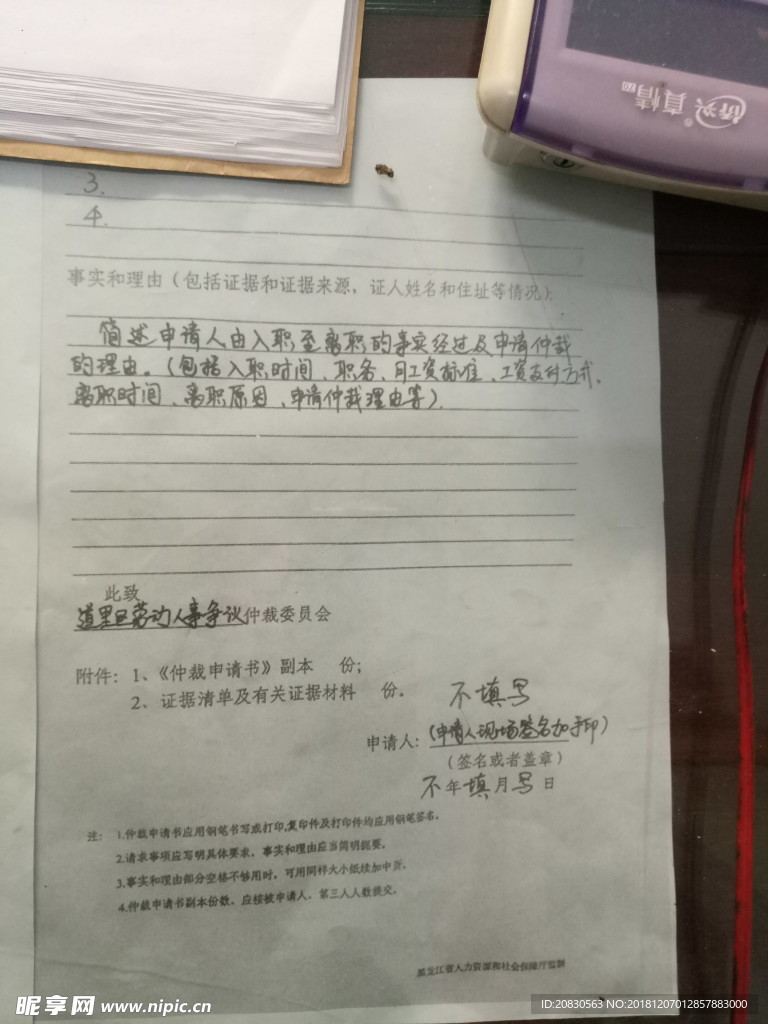 桥兴® 真情
3.
4.
事实和理由（包括证据和证据来源，证人姓名和住址等情况）：
简述申请人由入职至离职的事实经过及申请仲裁
的理由。（包括入职时间、职务、月工资标准、工资支付方式、
离职时间、离职原因、申请仲裁理由等）
此致
道里区劳动人事争议仲裁委员会
附件：1、《仲裁申请书》副本 份；
2、证据清单及有关证据材料 份。
不填写
申请人：（申请人现场签名加手印）
（签名或者盖章）
不年填月写日
注： 1.仲裁申请书应用钢笔书写或打印,复印件及打印件均应用钢笔签名。
2.请求事项应写明具体要求，事实和理由应当简明扼要。
3.事实和理由部分空格不够用时，可用同样大小纸续加中页。
4.仲裁申请书副本份数，应按被申请人、第三人人数提交。
黑龙江省人力资源和社会保障厅监制
昵享网 www.nipic.cn
ID:20830563 NO:20181207012857883000